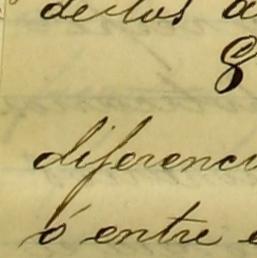 de los a
8
diferenci
ó entre e